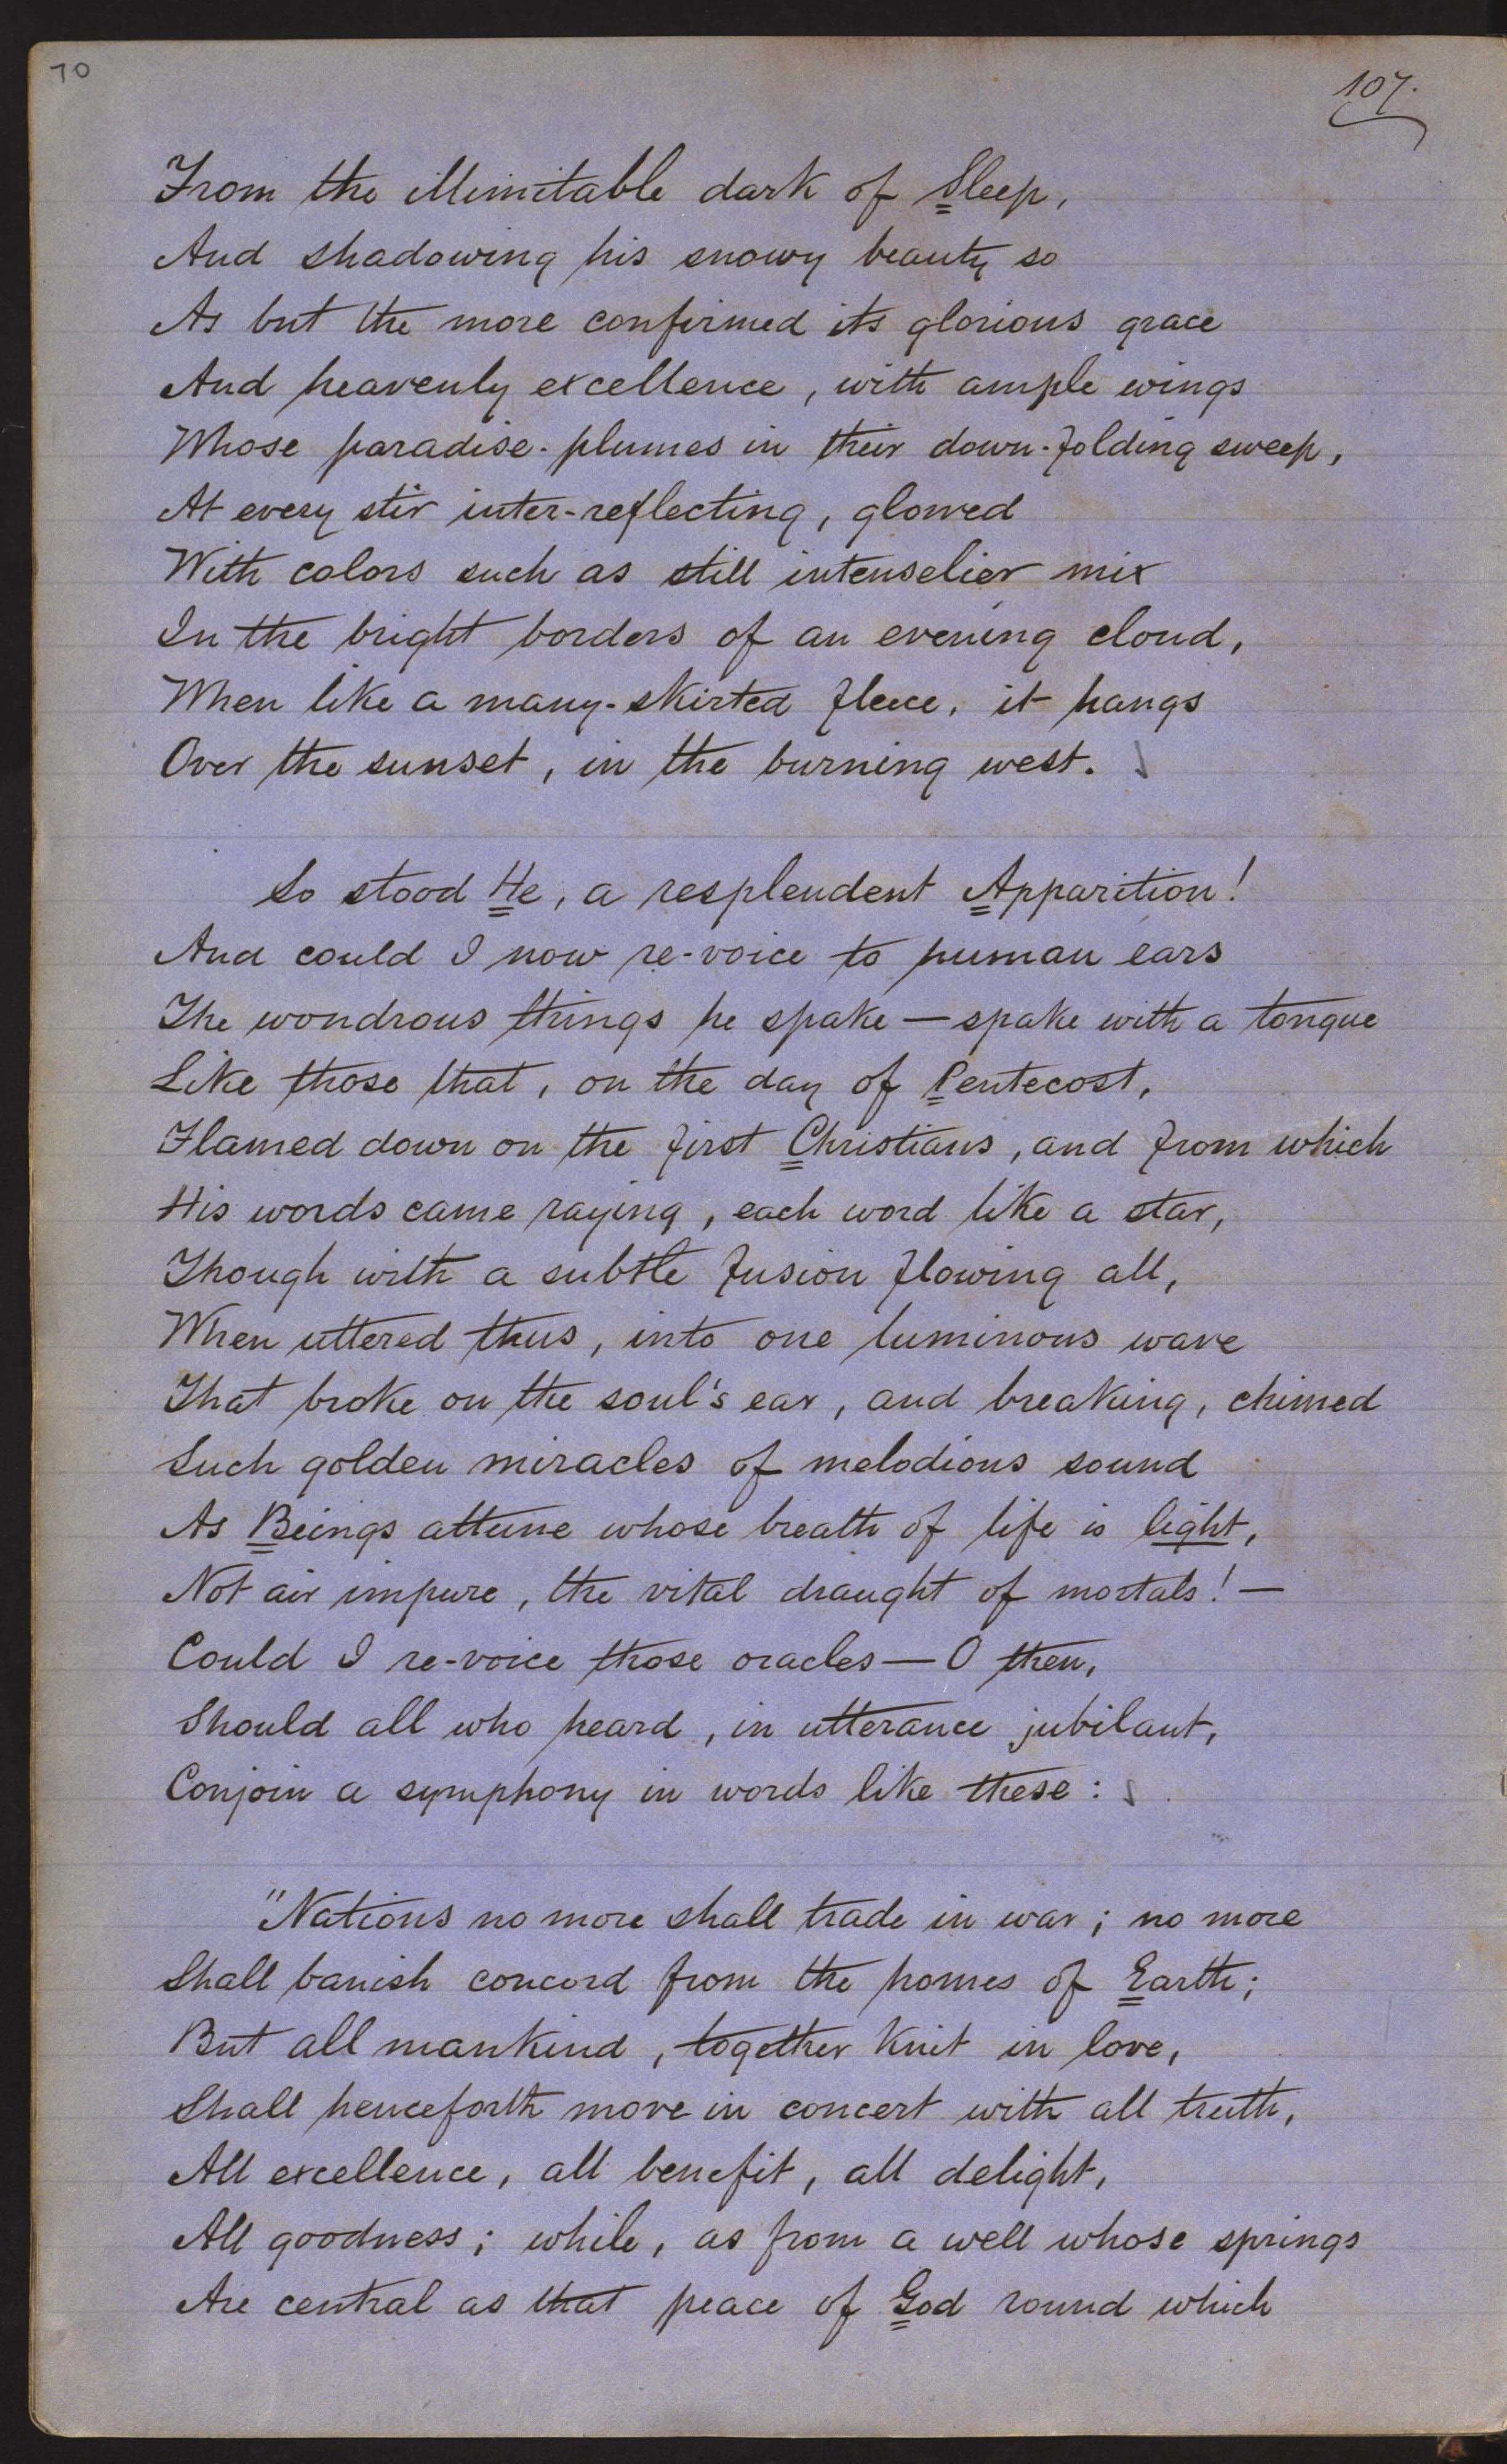 70
107.
From the illimitable dark of Sleep,
And shadowing his snowy beauty so
As but the more confirmed its glorious grace
And heavenly excellence, with ample wings
Whose paradise-plumes in their down-folding sweep,
At every stir inter-reflecting, glowed
With colors such as still intenselier mix
In the bright borders of an evening cloud,
When like a many-skirted fleece, it hangs
Over the sunset, in the burning west.
So stood He, a resplendent Apparition!
And could I now re-voice to human ears
The wondrous things he spake — spake with a tongue
Like those that, on the day of Pentecost,
Flamed down on the first Christians, and from which
His words came raying, each word like a star,
Though with a subtle fusion flowing all,
When uttered thus, into one luminous wave
That broke on the soul's ear, and breaking, chimed
Such golden miracles of melodious sound
As Beings attune whose breath of life is light,
Not air impure, the vital draught of mortals! —
Could I re-voice those oracles — O then,
Should all who heard, in utterance jubilant,
Conjoin a symphony in words like these:
"Nations no more shall trade in war; no more
Shall banish concord from the homes of Earth;
But all mankind, together knit in love,
Shall henceforth move in concert with all truth,
All excellence, all benefit, all delight,
All goodness; while, as from a well whose springs
Are central as that peace of God round which